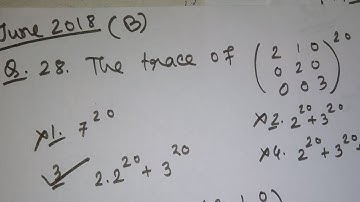 June 2018 (B)
Q. 28. The trace of (2 1 0
0 2 0
0 0 3)^20
1. 7^20
2. 2^20 + 3^20
3 2.2^20 + 3^20
4. 2^20 + 3^20